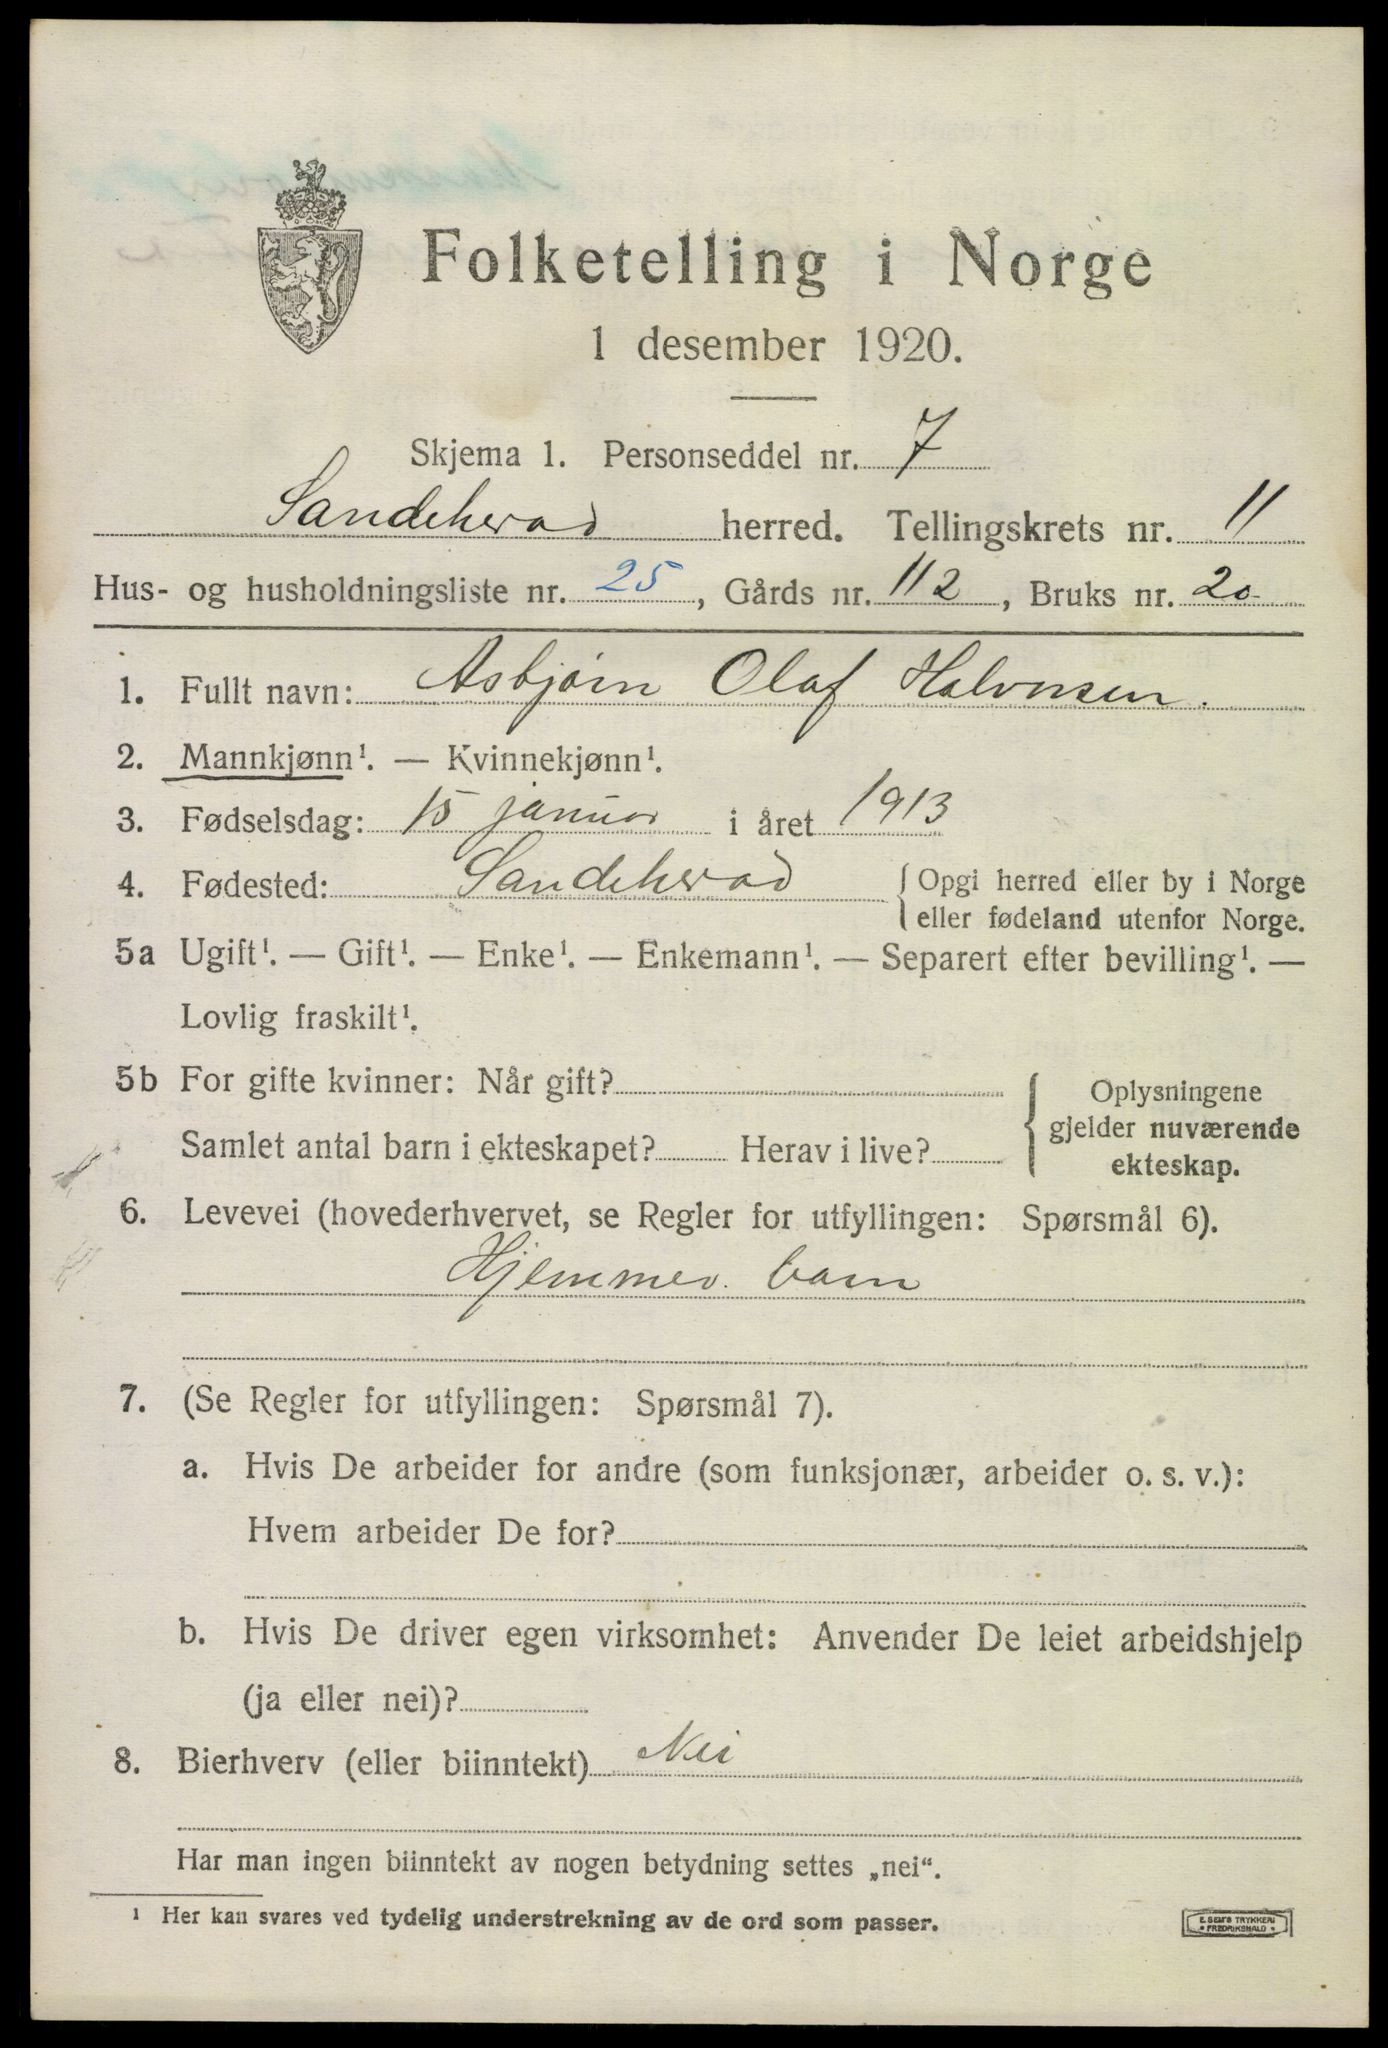 Folketelling i Norge
1 desember 1920.
Skjema 1. Personseddel nr. 7
Sandeherad herred. Tellingskrets nr. 11
Hus- og husholdningsliste nr. 25, Gårds nr. 112, Bruks nr. 20
1. Fullt navn: Asbjørn Olaf Halvorsen.
2. Mannkjønn¹. — Kvinnekjønn¹.
3. Fødselsdag: 15 januar i året 1913
4. Fødested: Sandeherad { Opgi herred eller by i Norge
eller fødeland utenfor Norge.
5a Ugift¹. — Gift¹. — Enke¹. — Enkemann¹. — Separert efter bevilling¹. —
Lovlig fraskilt¹.
5b For gifte kvinner: Når gift?
Samlet antal barn i ekteskapet? Herav i live?
{ Oplysningene
gjelder nuværende
ekteskap.
6. Levevei (hovederhvervet, se Regler for utfyllingen: Spørsmål 6).
Hjemmev. barn
7. (Se Regler for utfyllingen: Spørsmål 7).
a. Hvis De arbeider for andre (som funksjonær, arbeider o. s. v.):
Hvem arbeider De for?
b. Hvis De driver egen virksomhet: Anvender De leiet arbeidshjelp
(ja eller nei)?
8. Bierhverv (eller biinntekt) Nei
Har man ingen biinntekt av nogen betydning settes „nei“.
¹ Her kan svares ved tydelig understrekning av de ord som passer.
E. SEM'S TRYKKERI
• FREDRIKSHALD •